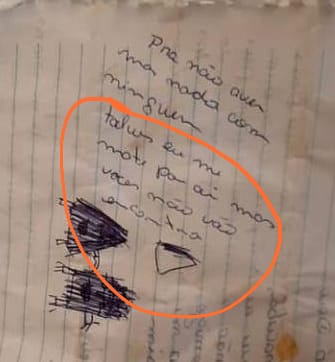 Pra não aver
mas nada com
ninguem
talves eu me
mate por ai mas
voces não vão
encontra